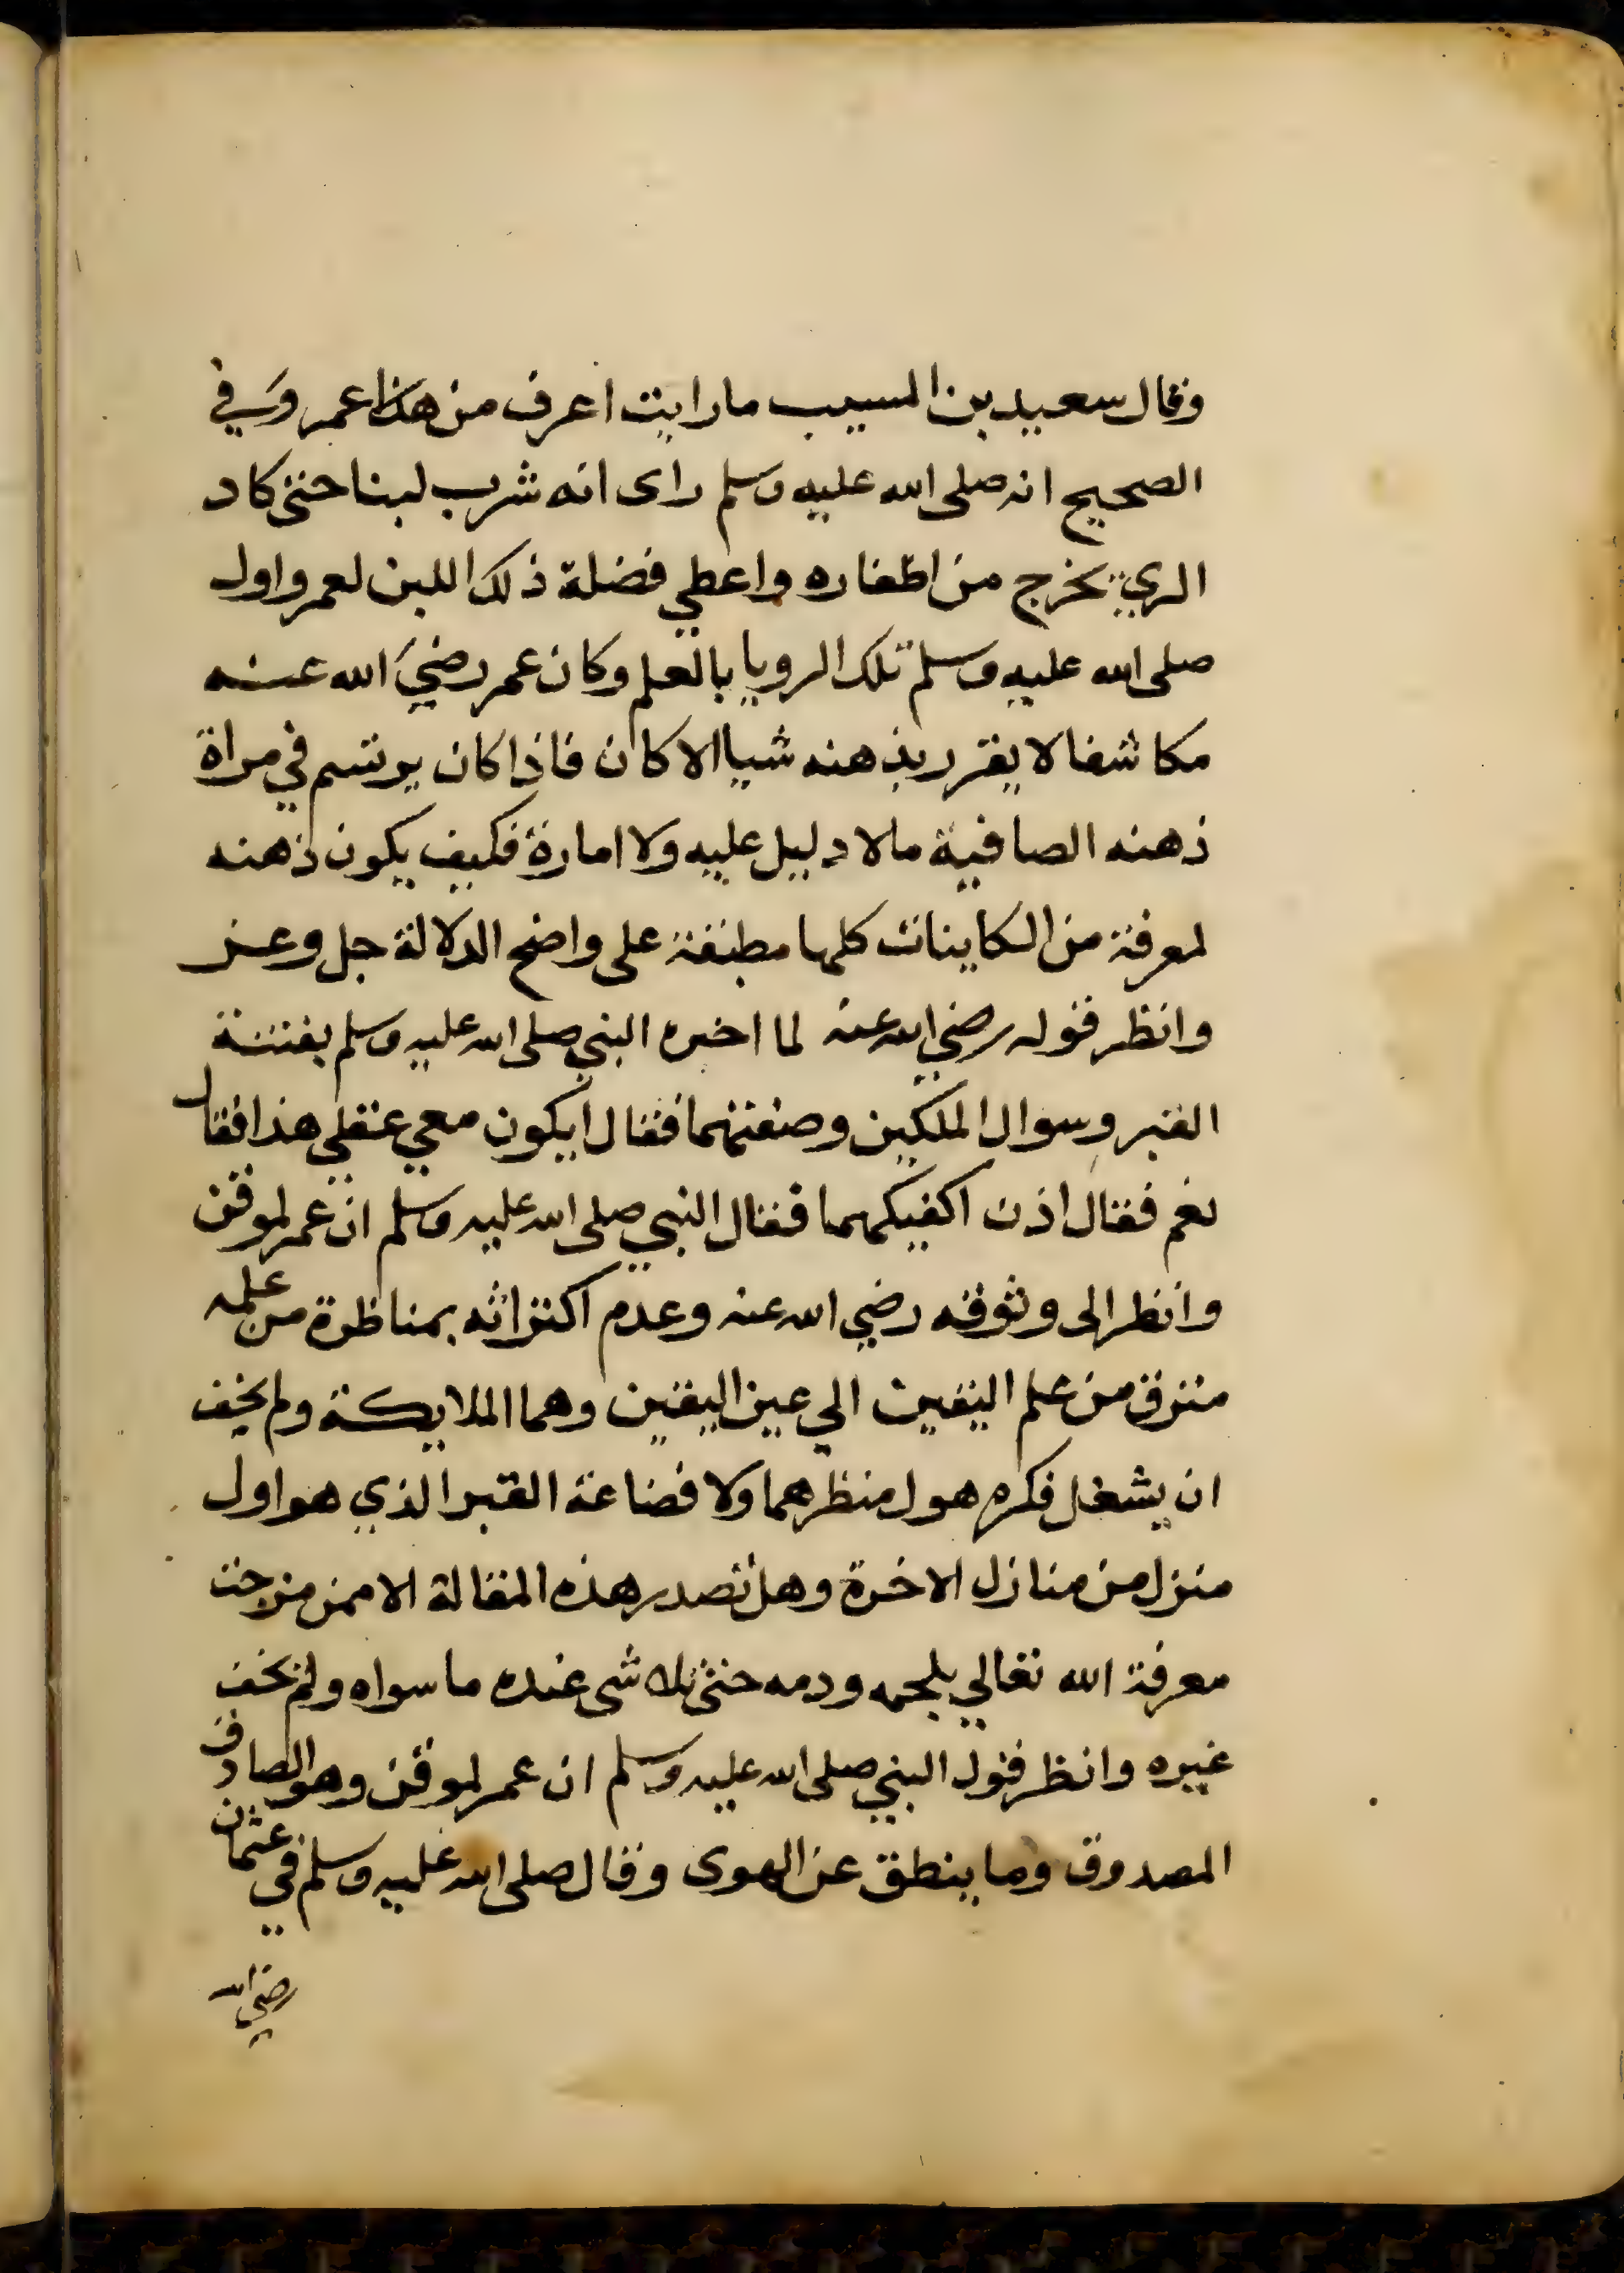 وقال سعيد بن المسيب ما رايت اعرف من هذا عمر وفي
الصحيح انه صلى الله عليه وسلم راى انه شرب لبنا حتى كاد
الري يخرج من اظفاره واعطي فضلة ذلك اللبن لعمر واول
صلى الله عليه وسلم تلك الرويا بالعلم وكان عمر رضي الله عنه
مكاشفا لا يقرر بذهنه شيا الا كان فاذا كان يرتسم في مراة
ذهنه الصافية ما لا دليل عليه ولا امارة فكيف يكون ذهنه
لمعرفة من الكاينات كلها مطبقة على واضح الدلالة جل وعز
وانظر قوله رضي الله عنه لما اخبره النبي صلى الله عليه وسلم بفتنة
القبر وسوال الملكين وصفتهما فقال ايكون معي عقلي هذا فقال
نعم فقال اذن اكفيكهما فقال النبي صلى الله عليه وسلم ان عمر لموقن
وانظر الى وثوقه رضي الله عنه وعدم اكتراثه بمناظرة من علمه
مترق من علم اليقين الي عين اليقين وهما الملايكة ولم يخف
ان يشغل فكره هول منظرهما ولا فضاعة القبر الذي هو اول
منزل من منازل الاخرة وهل تصدر هذه المقالة الا ممن مزجت
معرفة الله تعالي بلحمه ودمه حتى تلاشى عنده ما سواه ولم يخف
غيره وانظر قول النبي صلى الله عليه وسلم ان عمر لموقن وهو الصادق
المصدوق وما ينطق عن الهوى وقال صلى الله عليه وسلم في عثمان
رضي الله